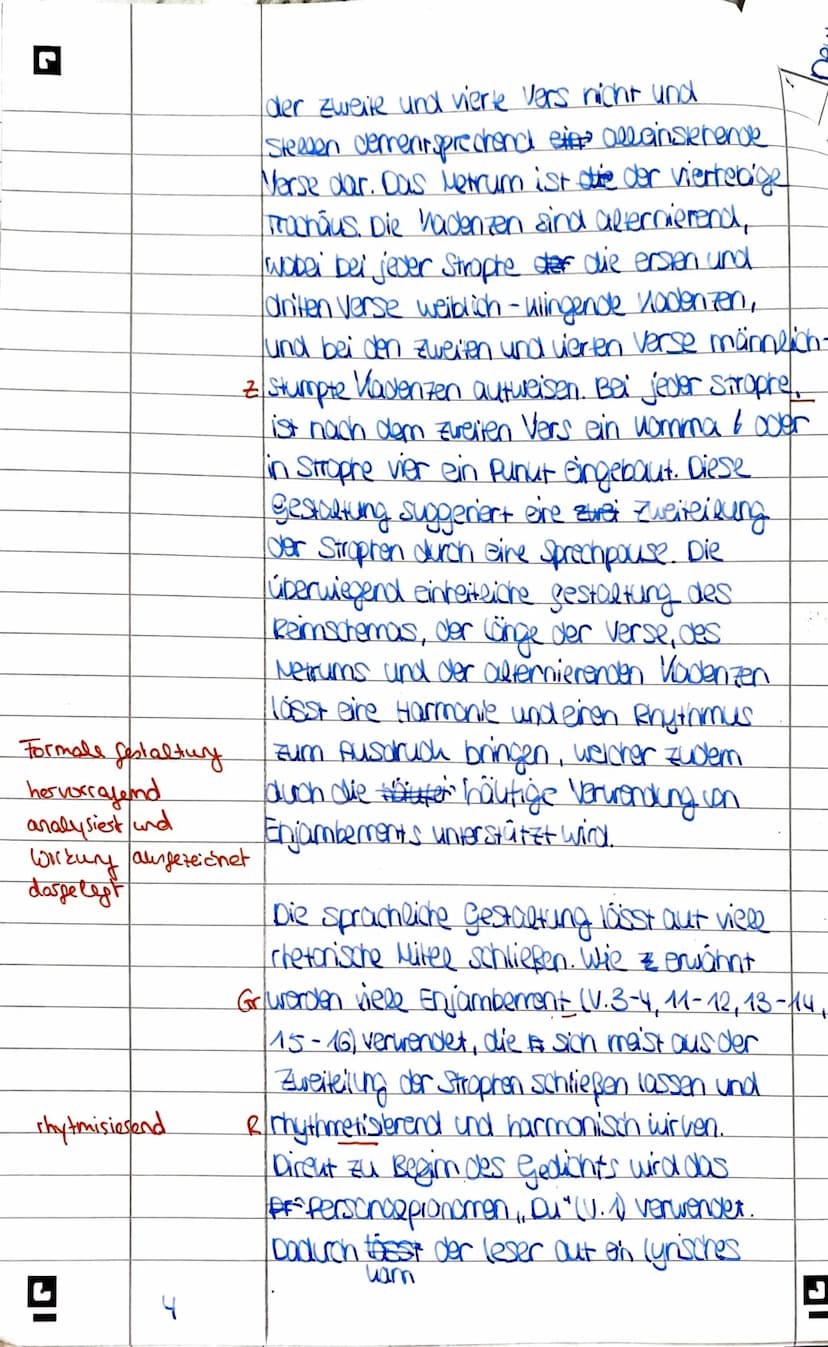 der zweite und vierte Vers nicht und
stellen dementsprechend ein alleinstehende
Verse dar. Das Metrum ist die der vierhebige
Trochäus. Die Kadenzen sind alternierend,
wobei bei jeder Strophe der die ersten und
dritten Verse weiblich-klingende Kadenzen,
und bei den zweiten und vierten Verse männlich-
Z stumpfe Kadenzen aufweisen. Bei jeder Strophe,
ist nach dem zweiten Vers ein Komma oder
in Strophe vier ein Punkt eingebaut. Diese
Gestaltung suggeriert eine zwei Zweiteilung
der Strophen durch eine Sprechpause. Die
überwiegend einheitliche gestaltung des
Reimschemas, der Länge der Verse, des
Metrums und der alternierenden Kadenzen
lässt eine Harmonie und einen Rhythmus
Formale Gestaltung zum Ausdruck bringen, welcher zudem
hervorragend durch die häufige Verwendung von
analysiert und Enjambements unterstützt wird.
Wirkung ausgezeichnet
dargelegt
Die sprachliche Gestaltung lässt auf viele
rhetorische Mittel schließen. Wie erwähnt
Gr werden viele Enjambement (V.3-4, 11-12, 13-14,
15-16) verwendet, die sich meist aus der
Zweiteilung der Strophen schließen lassen und
rhytmisierend R rhythmetisierend und harmonisch wirken.
Direkt zu Beginn des Gedichts wird das
Personalpronomen „Du" (V.1) verwendet.
Dadurch lässt der leser auf ein lyrisches
kann
4